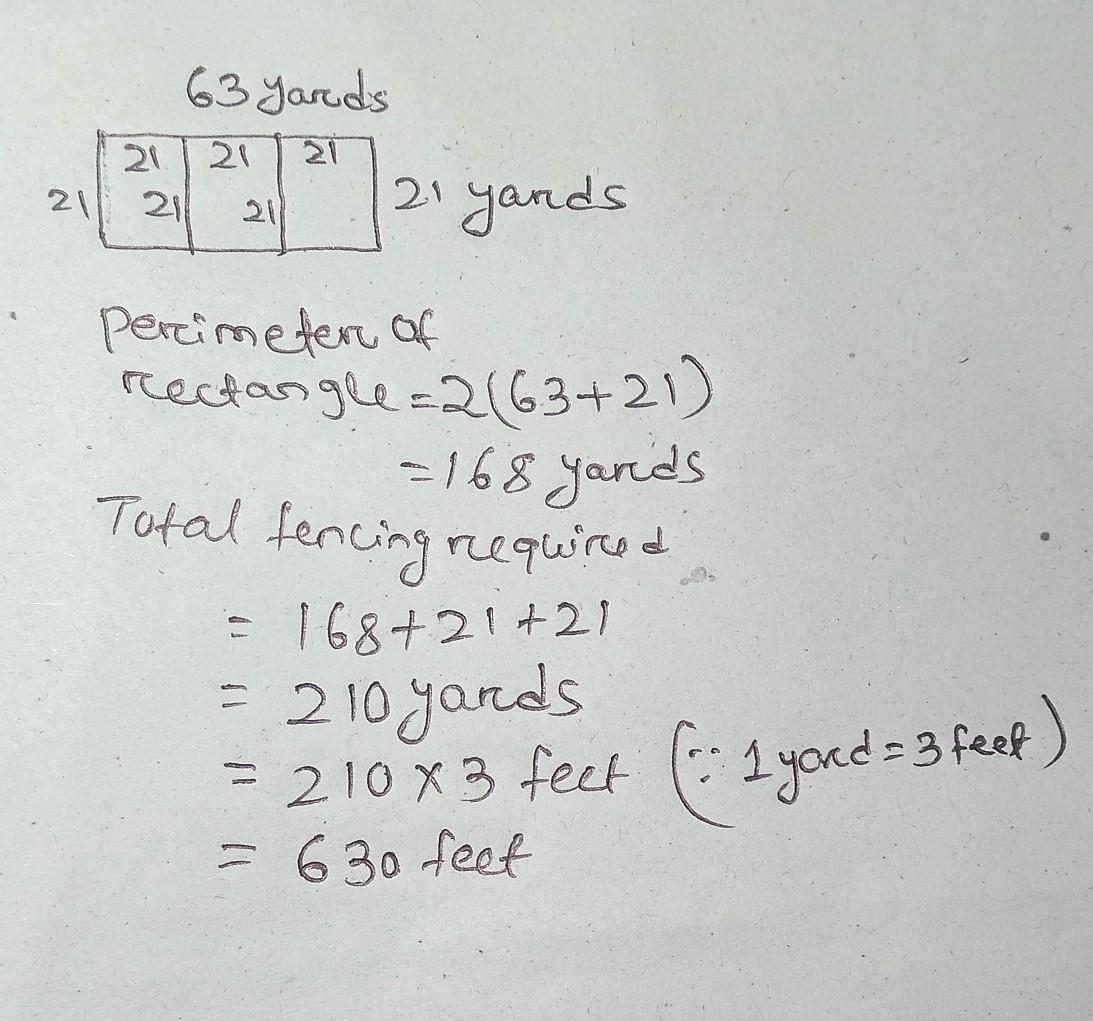 63 yards
21 21 21
21 21 21 21 yards
perimeter of
rectangle = 2(63+21)
= 168 yards
Total fencing required
= 168+21+21
= 210 yards
= 210 × 3 feet (∵ 1 yard = 3 feet)
= 630 feet